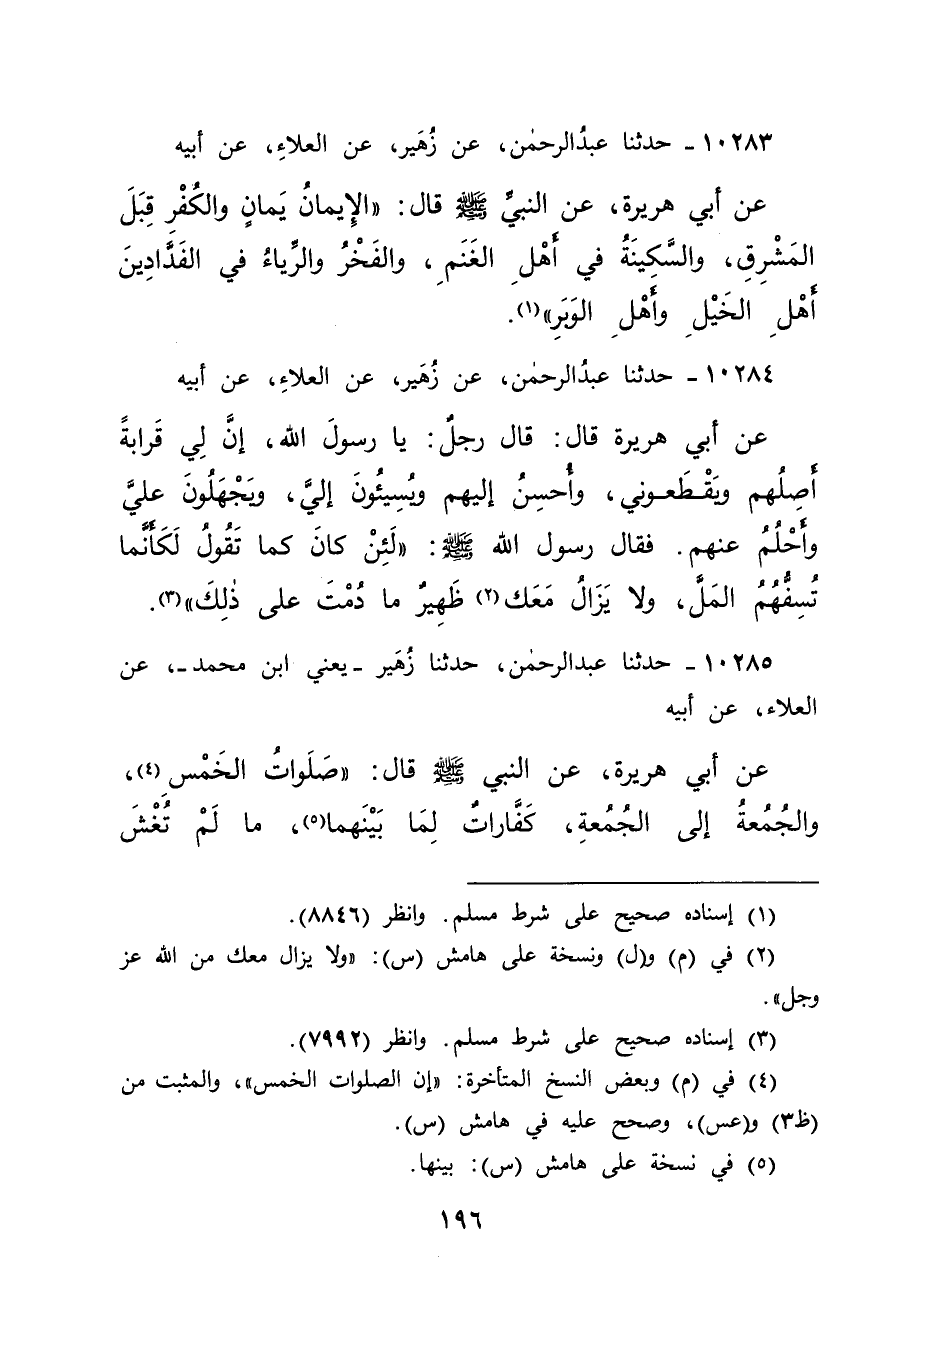 ١٠٢٨٣ - حدثنا عبدُالرحمٰن، عن زُهَير، عن العلاءِ، عن أبيه
عن أبي هريرة، عن النبيِّ ﷺ قال: «الإِيمانُ يَمانٍ والكُفْرِ قِبَلَ
المَشْرِقِ، والسَّكِينَةُ في أَهْلِ الغَنَمِ، والفَخْرُ والرِّياءُ في الفَدَّادِينَ
أَهْلِ الخَيْلِ وأَهْلِ الوَبَرِ»(١).
١٠٢٨٤ - حدثنا عبدُالرحمٰن، عن زُهَير، عن العلاءِ، عن أبيه
عن أبي هريرة قال: قال رجلٌ: يا رسولَ الله، إنَّ لِي قَرابةً
أَصِلُهم ويَقْطَعوني، وأُحسِنُ إليهم ويُسِيئُونَ إليَّ، ويَجْهَلُونَ عليَّ
وأَحْلُمُ عنهم. فقال رسول الله ﷺ: «لَئِنْ كانَ كما تَقُولُ لَكَأَنَّما
تُسِفُّهُمُ المَلَّ، ولا يَزَالُ مَعَك(٢) ظَهِيرٌ ما دُمْتَ على ذٰلِكَ»(٣).
١٠٢٨٥ - حدثنا عبدالرحمٰن، حدثنا زُهَير - يعني ابن محمد -، عن
العلاء، عن أبيه
عن أبي هريرة، عن النبي ﷺ قال: «صَلَواتُ الخَمْسِ(٤)،
والجُمُعةُ إلى الجُمُعةِ، كَفَّاراتٌ لِمَا بَيْنَهما(٥)، ما لَمْ تُغْشَ
(١) إسناده صحيح على شرط مسلم. وانظر (٨٨٤٦).
(٢) في (م) و(ل) ونسخة على هامش (س): «ولا يزال معك من الله عز
وجل».
(٣) إسناده صحيح على شرط مسلم. وانظر (٧٩٩٢).
(٤) في (م) وبعض النسخ المتأخرة: «إن الصلوات الخمس»، والمثبت من
(ظ٣) و(عس)، وصحح عليه في هامش (س).
(٥) في نسخة على هامش (س): بينها.
١٩٦